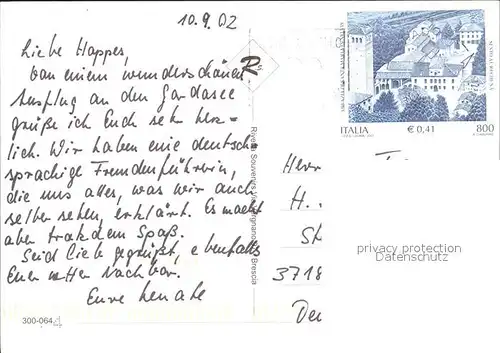 10.9.02
Liebe Happes,
von einem wunderschönen
Ausflug an den Gardasee
grüße ich Euch sehr herz-
lich. Wir haben eine deutsch-
sprachige Fremdenführerin,
die uns alles, was wir auch
selber sehen, erklärt. Es macht
aber trotzdem Spaß.
Seid lieb gegrüßt, ebenfalls
Euer Nachbar.
Eure Renate
300-064
ITALIA
€ 0,41
800
Herr
H.
St
3718
Deu
privacy protection
Datenschutz